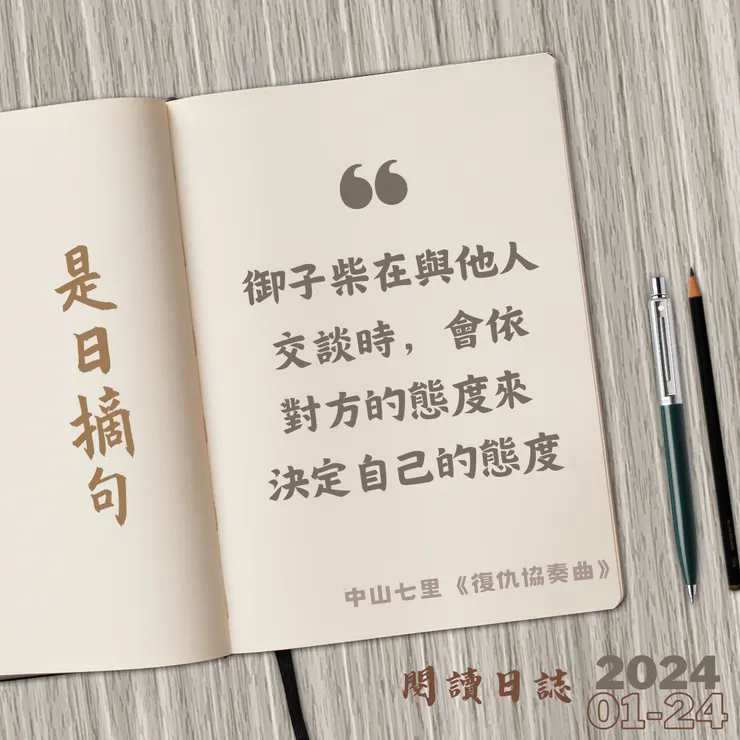 是日摘句
❝
御子柴在與他人
交談時，會依
對方的態度來
決定自己的態度
中山七里《復仇協奏曲》
閱讀日誌
2024
01-24